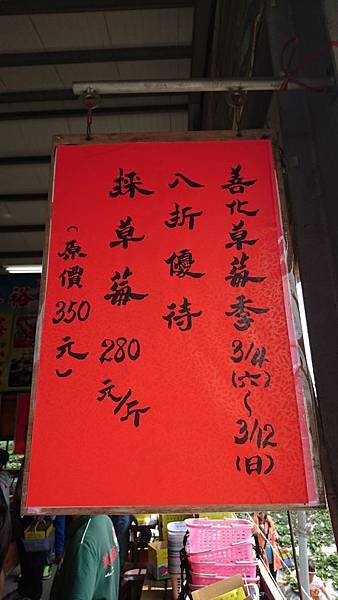 善化草莓季3/4(六)~3/12(日)
八折優待
採草莓280元/斤
(原價350元)